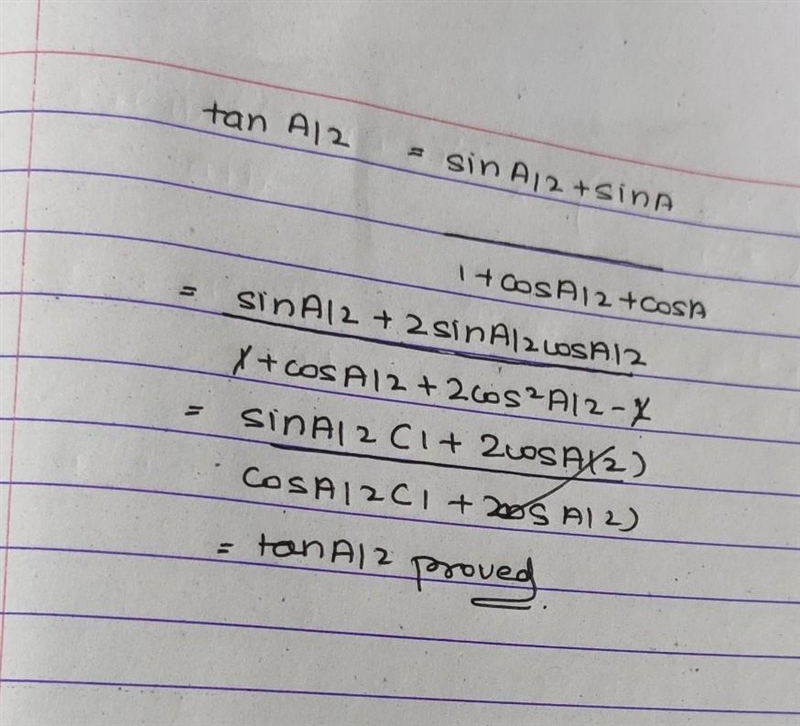 tan A/2 = sin A/2 + sin A
1 + cos A/2 + cos A
= sin A/2 + 2 sin A/2 cos A/2
1 + cos A/2 + 2 cos² A/2 - 1
= sin A/2 (1 + 2 cos A/2)
cos A/2 (1 + 2cos A/2)
= tan A/2 proved.